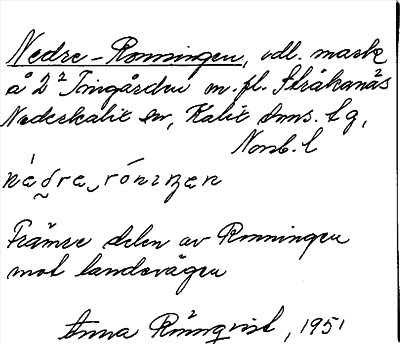 Nedre-Ronningen, odl. mark
å 2² Tingården m. fl. Stråkanäs
Nederkalix sn, Kalix tmns. t g,
Norrb. l
Främre delen av Ronningen
mot landsvägen
Anna Rönnqvist, 1951